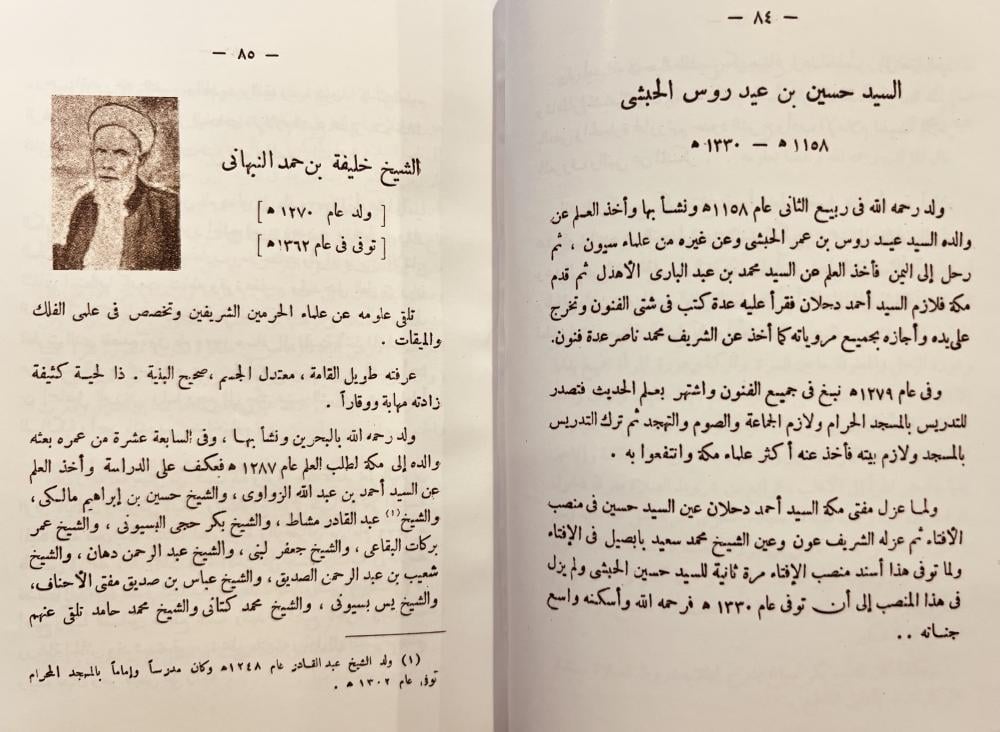 — ٨٤ —
السيد حسين بن عيد روس الحبشى
١١٥٨ ﻫ — ١٣٣٠ ﻫ
ولد رحمه الله فى ربيع الثانى عام ١١٥٨ ﻫ ونشأ بها وأخذ العلم عن
والده السيد عيد روس بن عمر الحبشى وعن غيره من علماء سيون ، ثم
رحل إلى اليمن فأخذ العلم عن السيد محمد بن عبد البارى الأهدل ثم قدم
مكة فلازم السيد أحمد دحلان فقرأ عليه عدة كتب فى شتى الفنون وتخرج
على يده وأجازه بجميع مروياته كما أخذ عن الشريف محمد ناصر عدة فنون .
وفى عام ١٢٧٩ ﻫ نبغ فى جميع الفنون واشتهر بعلم الحديث فتصدر
للتدريس بالمسجد الحرام ولازم الجماعة والصوم والتهجد ثم ترك التدريس
بالمسجد ولازم بيته فأخذ عنه أكثر علماء مكة وانتفعوا به .
ولما عزل مفتى مكة السيد أحمد دحلان عين السيد حسين فى منصب
الأفتاء ثم عزله الشريف عون وعين الشيخ محمد سعيد بابصيل فى الإفتاء
ولما توفى هذا أسند منصب الإفتاء مرة ثانية للسيد حسين الحبشى ولم يزل
فى هذا المنصب إلى أن توفى عام ١٣٣٠ ﻫ فرحمه الله وأسكنه واسع
جناته ..
— ٨٥ —
الشيخ خليفة بن حمد النبهانى
[ ولد عام ١٢٧٠ ﻫ ]
[ توفى فى عام ١٣٦٢ ﻫ ]
تلقى علومه عن علماء الحرمين الشريفين وتخصص فى علمى الفلك
والميقات .
عرفته طويل القامة ، معتدل الجسم ، صحيح البنية . ذا لحية كثيفة
زادته مهابة ووقاراً .
ولد رحمه الله بالبحرين ونشأ بها ، وفى السابعة عشرة من عمره بعثه
والده إلى مكة لطلب العلم عام ١٢٨٧ ﻫ فعكف على الدراسة وأخذ العلم
عن السيد أحمد بن عبد الله الزواوى ، والشيخ حسين بن إبراهيم مالكى ،
والشيخ (١) عبد القادر مشاط ، والشيخ بكر حجى البسيونى ، والشيخ عمر
بركات البقاعى ، والشيخ جعفر لبنى ، والشيخ عبد الرحمن دهان ، والشيخ
شعيب بن عبد الرحمن الصديق ، والشيخ عباس بن صديق مفتى الأحناف،
والشيخ يس بسيونى ، والشيخ محمد كتانى والشيخ محمد حامد تلقى عنهم
(١) ولد الشيخ عبد القادر عام ١٢٤٨ ﻫ وكان مدرساً وإماماً بالمسجد الحرام
توفى عام ١٣٠٢ ﻫ .